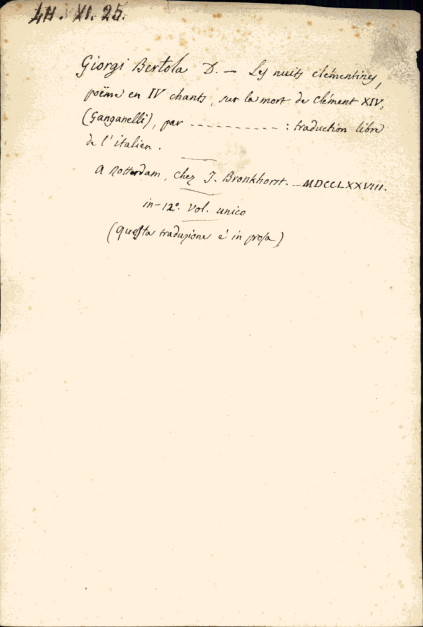 44. XI. 25.
Giorgi Bertola D. — Les nuits clémentines,
poëme en IV chants, sur la mort de Clément XIV,
(Ganganelli), par ------------ : traduction libre
de l'italien.
A Rotterdam, chez J. Bronkhorst. — MDCCLXXVIII.
in-12°. vol. unico
(Questa traduzione é in prosa)